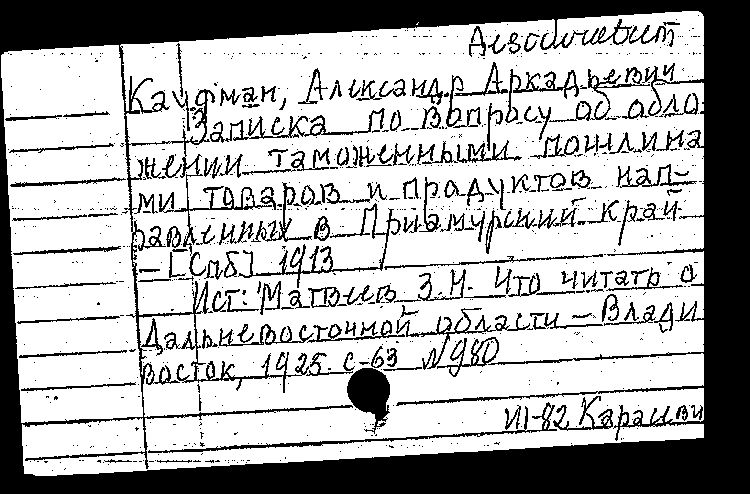 Кауфман, Александр Аркадьевич
Записка по вопросу об обло
жении таможенными пошлина
ми товаров и продуктов нап-
равленных в Приамурский край
– [Спб] 1913
Ист: Матвеев З.Н. Что читать о
Дальневосточной области – Влади
восток, 1925. с-63 №980
VI-82